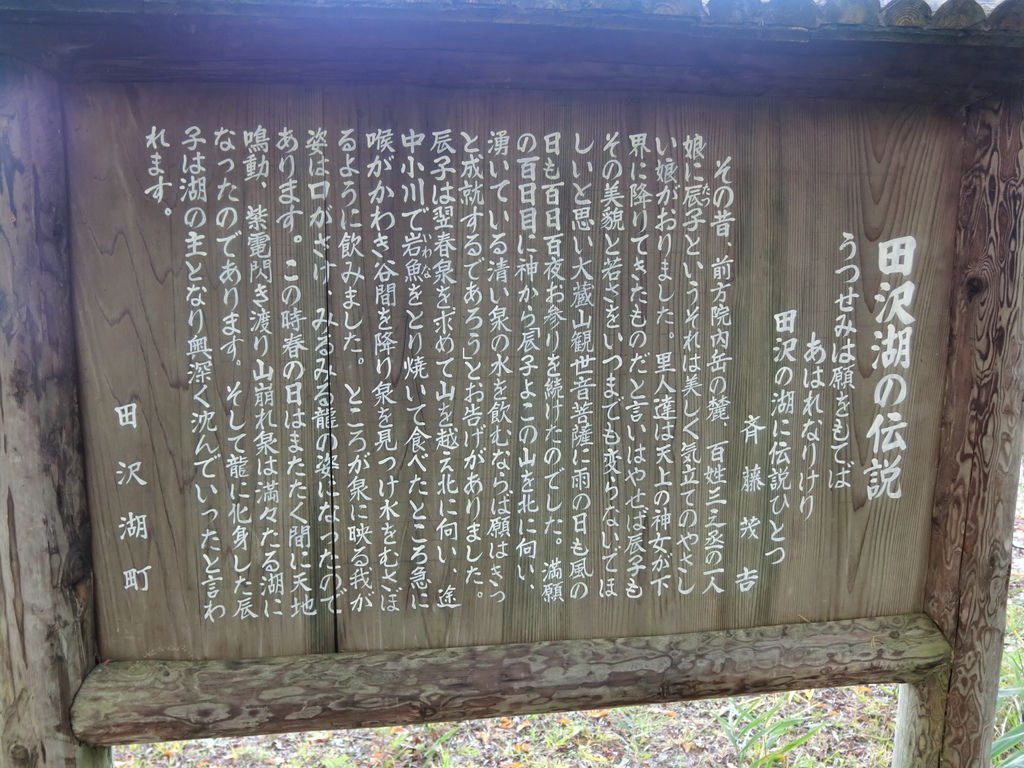 田沢湖の伝説
うつせみは願をもてば
あはれなりけり
田沢の湖に伝説ひとつ
斉藤茂吉
その昔、前方院内岳の麓、百姓三之丞の一人
娘に辰子というそれは美しく気立てのやさし
い娘がおりました。里人達は天上の神女が下
界に降りてきたものだと言いはやせば辰子も
その美貌と若さをいつまでも変らないでほ
しいと思い大蔵山観世音菩薩に雨の日も風の
日も百日百夜お参りを続けたのでした。満願
の百日目に神から「辰子よこの山を北に向い、
湧いている清い泉の水を飲むならば願はきっ
と成就するであろう」とお告げがありました。
辰子は翌春泉を求めて山を越え北に向い、途
中小川で岩魚をとり焼いて食べたところ急に
喉がかわき谷間を降り泉を見つけ水をむさぼ
るように飲みました。ところが泉に映る我が
姿は口がさけ、みるみる龍の姿になったので
あります。この時春の日はまたたく間に天地
鳴動、紫電閃き渡り山崩れ泉は満々たる湖に
なったのであります。そして龍に化身した辰
子は湖の主となり興深く沈んでいったと言わ
れます。
田沢湖町